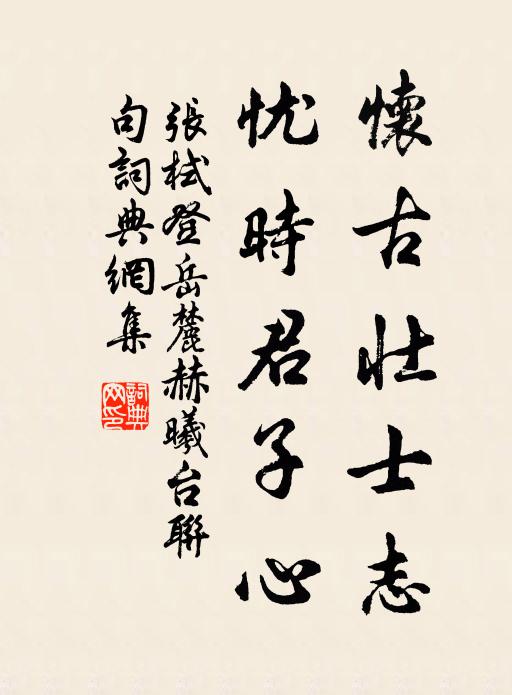 懷古壯士志
忧時君子心
張栻登岳麓赫曦台聯
句詞典網集
詞典網印